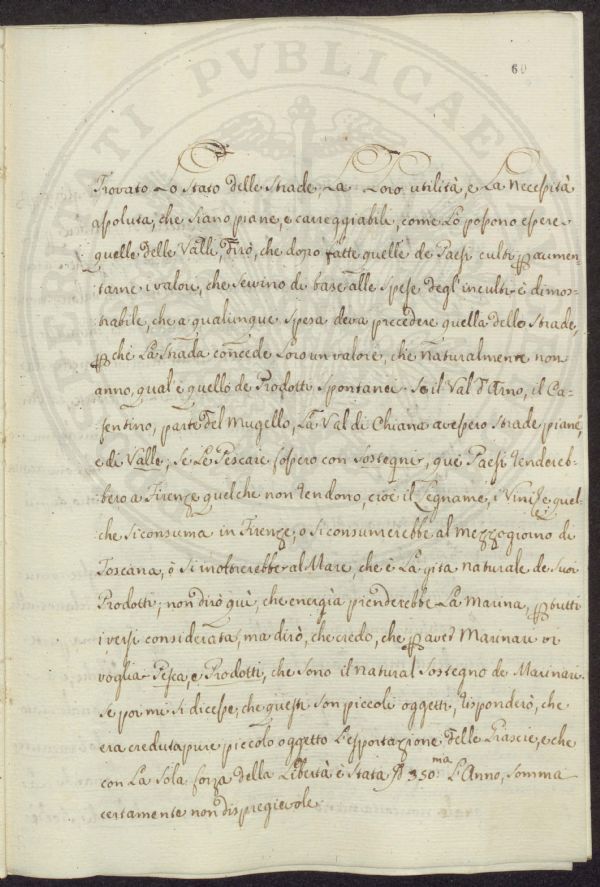 60
Trovato Lo Stato delle Strade, La Loro utilità, e La Necessità
assoluta, che Siano piane, e carreggiabili, come Lo possono essere
quelle delle Valli, Dirò, che dopo fatte quelle de Paesi culti p aumen-
tarne i valori, che Servino di base alle Spese degl'inculti è dimos-
trabile, che a qualunque Spesa deva precedere quella delle Strade,
pchè La Strada concede Loro un valore, che naturalmente non
anno, qual è quello de Prodotti Spontanei. Se il Val d'Arno, il Ca-
sentino, parte del Mugello, La Val di Chiana avessero Strade piane,
e di Valle; Se Le Pescaie fossero con Sostegni, quei Paesi vendereb-
bero a Firenze quel che non vendono, cioè il Legname, i Vini, e quel
che Si consuma in Firenze, o Si consumerebbe al mezzogiorno di
Toscana, ò Si inoltrerebbe al Mare, che è La gita naturale de Suoi
Prodotti; non dirò quì, che energìa prenderebbe La Marina, p tutti
i versi considerata, ma dirò, che credo, che p aver Marinari vi
voglia Pesca, e Prodotti, che sono il natural Sostegno de Marinari.
Se poi mi Si dicesse, che questi Son piccoli oggetti, risponderò, che
era creduta pure piccolo oggetto L'esportazione delle Grascie, e che
con La Sola forza della Libertà è Stata 350.ma L'Anno, Somma
certamente non dispregievole.
PVBLICAE